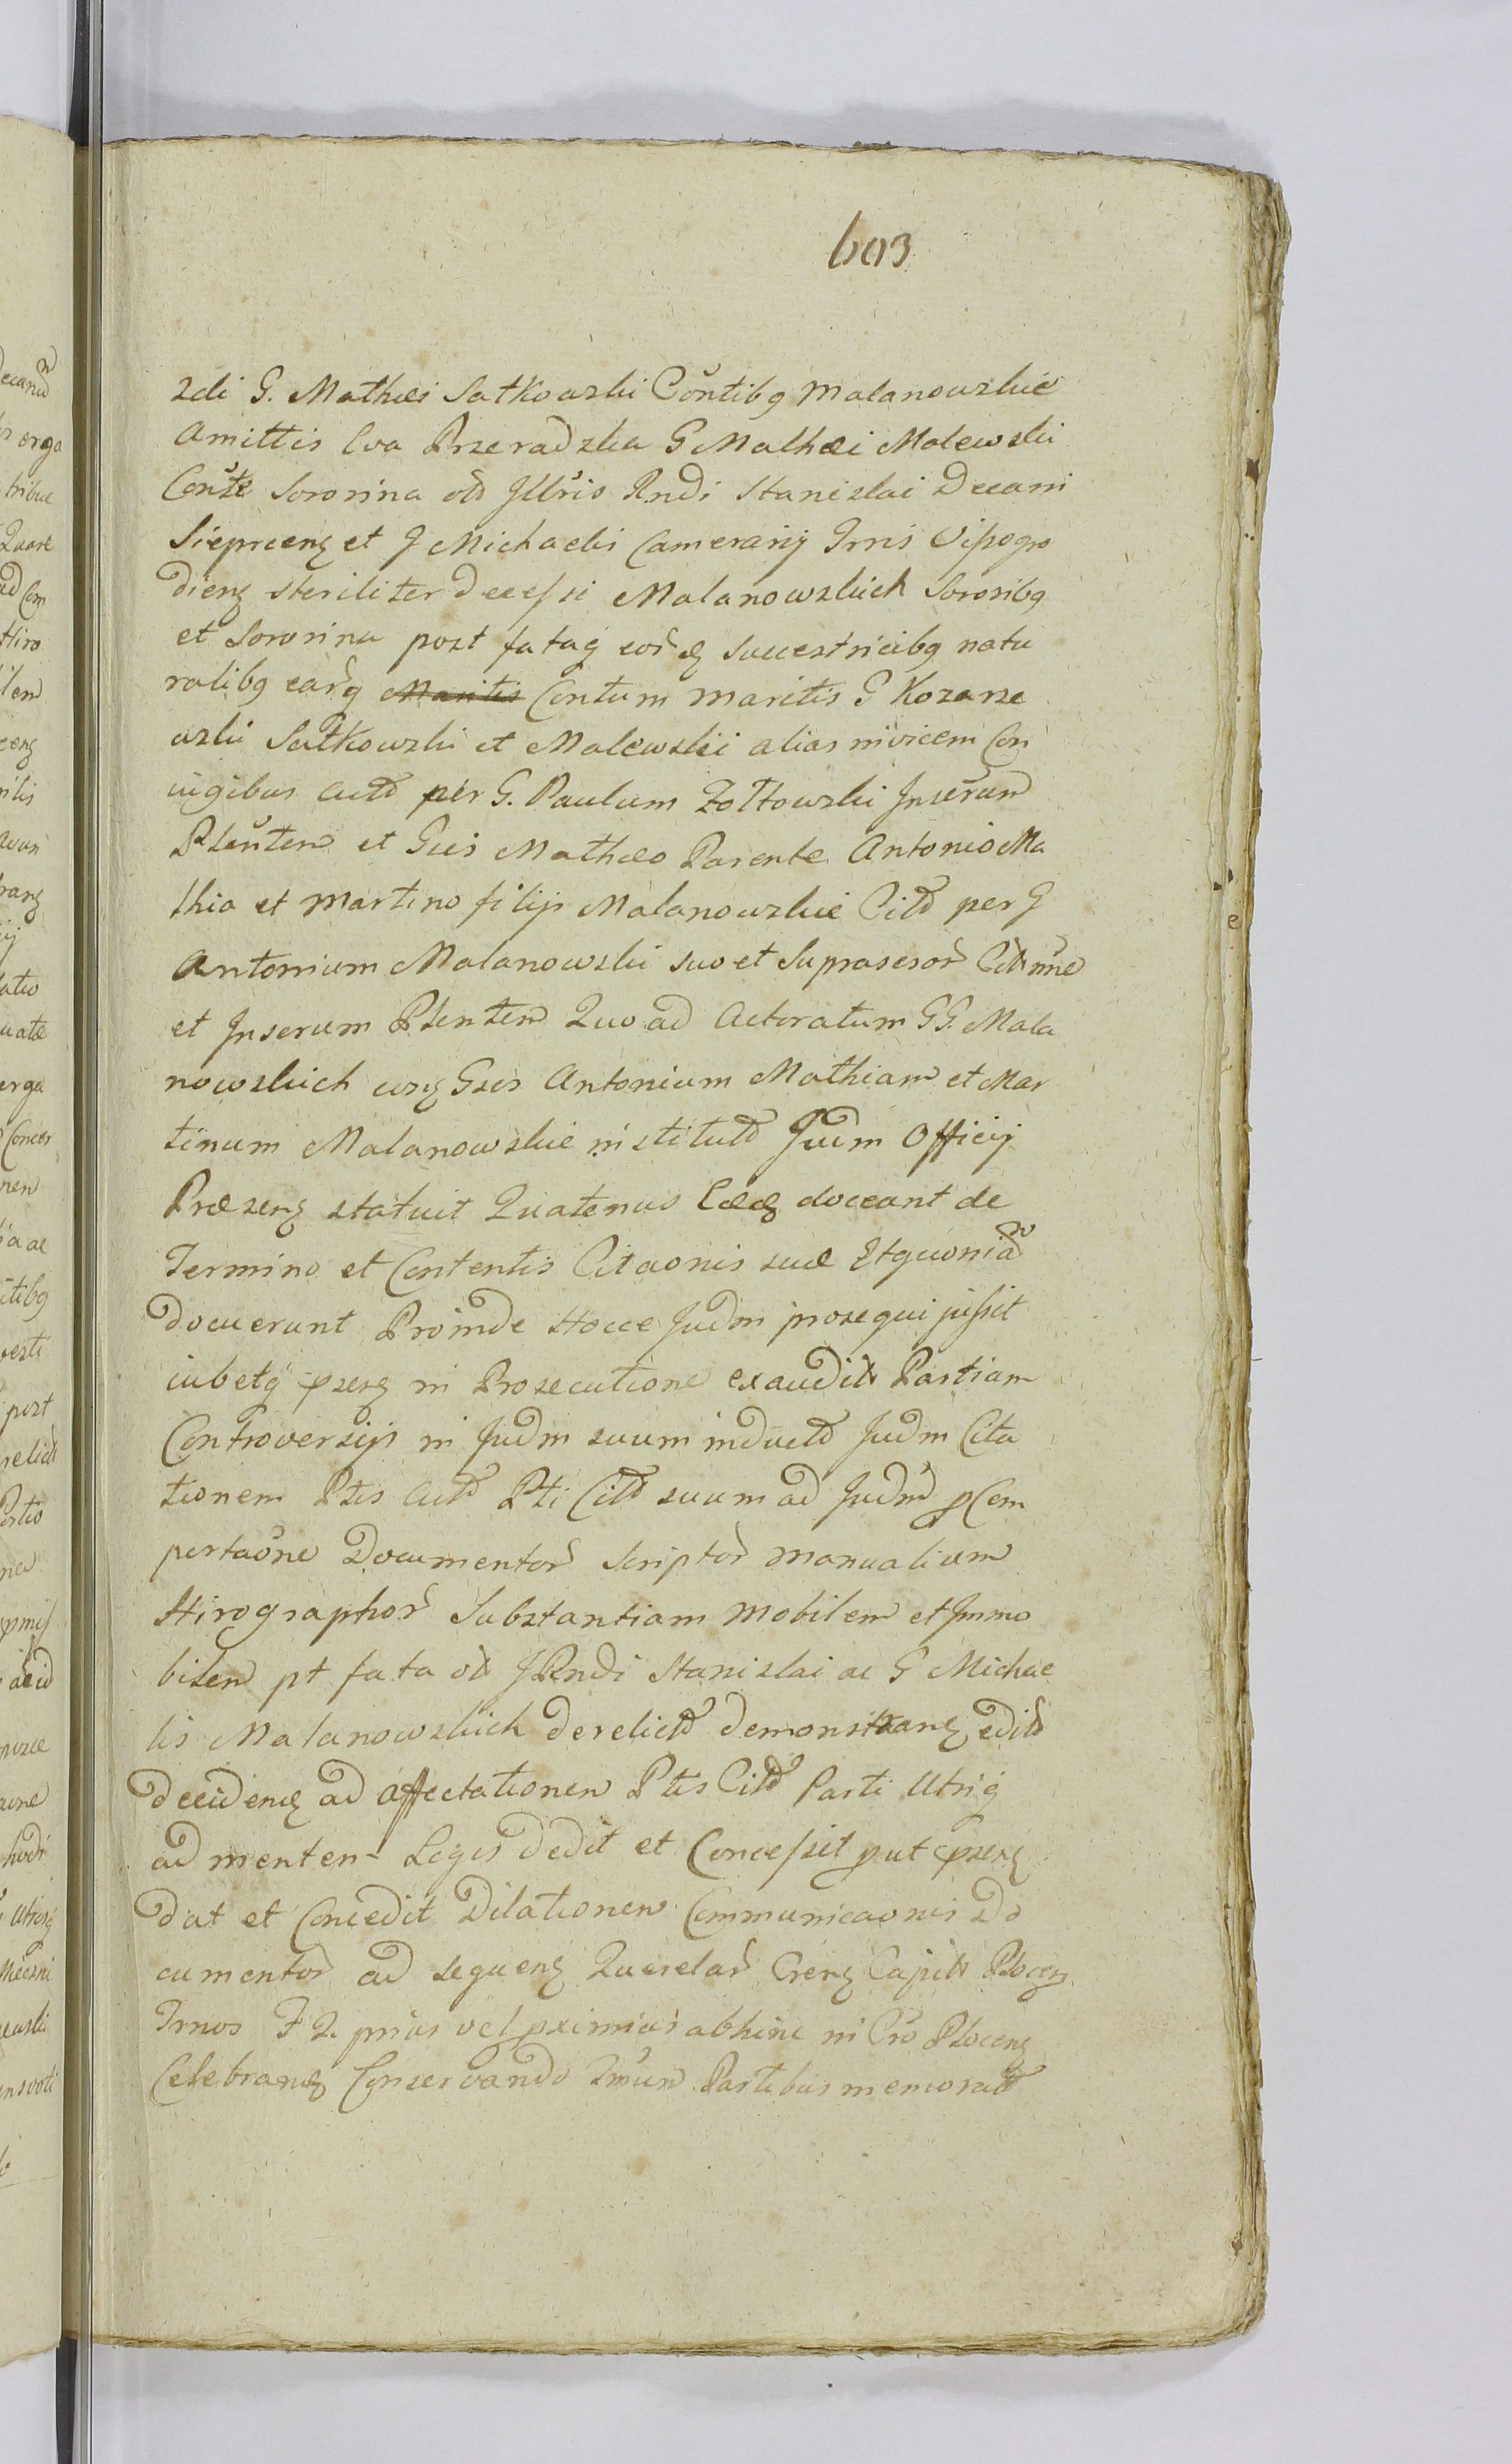 603
ski G. Mathæi Satkowski Con̄tibq Malanowskie
Amittis Eva Przeradzka G Mathæi Malewski
Con̄te Sororina olt Jllr̄is Rndi Stanislai Decani
Sieprcenq et G Michaelis Camerarij Trris Vissogro
dienq steriliter Decessi Malanowskich Sororibq
et Sororina post fataq eor̄q Successtricibq natu
ralibq ear̄q Maritis Centum maritis G Kozarze
wski Satkowski et Malewski alias invicem Con
iugibus Actt per G. Paulum Zołtowski Inserum
Plen̄tem et Gsis Mathæo Parente Antonio Ma
thia et Martino filijs Malanowskie Citt per G
Antonium Malanowski suo et Suprasesor̄ Citt n̄ne
et Inserum Plentem Quo ad Actoratum GG. Mala
nowskich Gsos Antonium Mathiam et Mar
tinum Malanowskie institutt Judm Officij
Præsenq statuit Quatenus doceant de
Termino et Contentis Citaonis suæ Etquoniam
docuerunt Proinde Hocce Judm prosequi jussit
iubetq psenq in Prosecutione exauditt Partium
Controversijs in Judm suum inductt Judm Cita
tionem Ptis Actt Pti Citt suum ad Judm p Com
portaōne Documentor̄ Scriptor̄ manualium
Hirographor̄ Substantiam Mobilem et Immo
bilem pt fata olt JRndi Stanislai ac G Michae
lis Malanowskich derelictt demonstranq editt
decidenq ad affectationem Ptis Citt Parti Utriq
ad mentem Legis dedit et Concessit put psenq
dat et Concedit Dilationem Communicaonis Do
cumentor̄ ad sequenq Querelar̄ Crenq Capitt Plocenq
Trnos F Q. prius vel pximius abhinc in Cro Plocenq
Celebranq Conservando Partibus memoratt